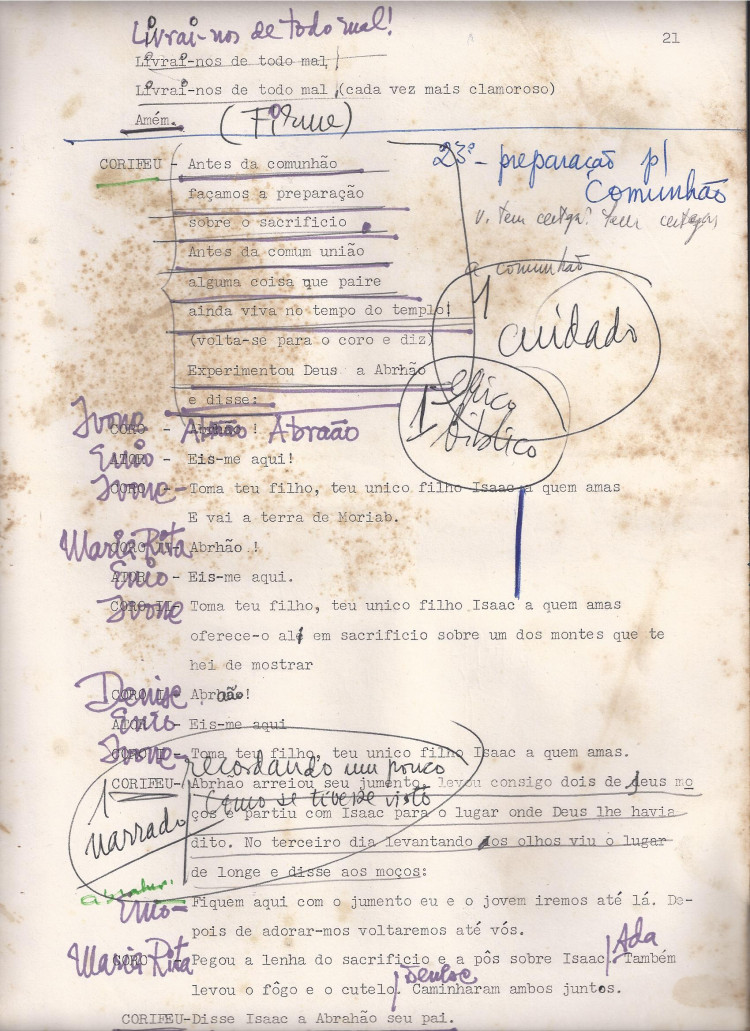 Livrai-nos de todo mal!
21
Livrai-nos de todo mal,
Livrai-nos de todo mal, (cada vez mais clamoroso)
Amém.
(Firme)
CORIFEU - Antes da comunhão
façamos a preparação
sobre o sacrificio.
Antes da comum união
alguma coisa que paire
ainda viva no tempo do templo!
(volta-se para o coro e diz)
Experimentou Deus a Abrhão
e disse:
23º - preparação p/
Comunhão
v. tem certeza? tem certeza
a comunhão
1 cuidado
1 épico
bíblico
Ivone CORO - Abraão! Abraão
Enio ATOR - Eis-me aqui!
Ivone - CORO - Toma teu filho, teu unico filho Isaac a quem amas
E vai a terra de Moriab.
Maria Rita CORO II- Abrhão !
Enio ATOR - Eis-me aqui.
Ivone CORO II- Toma teu filho, teu unico filho Isaac a quem amas
oferece-o alí em sacrificio sobre um dos montes que te
hei de mostrar
Denise CORO I - Abrhaão!
Enio ATOR - Eis-me aqui
Ivone - CORO I - Toma teu filho, teu unico filho Isaac a quem amas.
recordando um pouco
CORIFEU- Abrhão arreiou seu jumento, levou consigo dois de seus mo
como se tivesse visto
1 narrado
ços e partiu com Isaac para o lugar onde Deus lhe havia
dito. No terceiro dia levantando os olhos viu o lugar
de longe e disse aos moços:
Enio - Fiquem aqui com o jumento eu e o jovem iremos até lá. De-
pois de adorar-mos voltaremos até vós.
Maria Rita CORO - Pegou a lenha do sacrificio e a pôs sobre Isaac. Também
Ada
Denise
levou o fôgo e o cutelo. Caminharam ambos juntos.
CORIFEU-Disse Isaac a Abrahão seu pai.